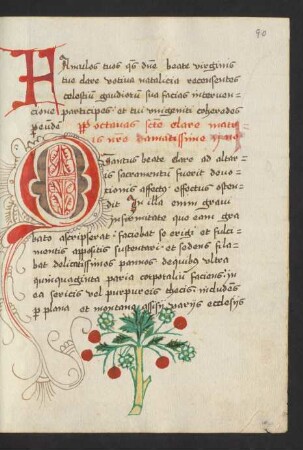 90
Famulos tuos qs dne beate virginis
tue clare votiva natalicia recensentes
celestiu gaudioru sua facias interven-
cione participes et tui unigeniti coheredes
Per octavas scte clare
Quantus beate clare ad altar
is sacramentu fuerit devo
tionis affectus effectus osten
dit In illa enim gravi
infirmitate que eam gra
bato ascripserat faciebat se erigi et fulci
mentis appositis sustentari et sedens fila
bat delicatissimos pannos de quibus ultra
quinquaginta paria corporaliu faciens in
ea sericis vel purpureis thecis includens
p plana et montana assisij varijs ecclesijs